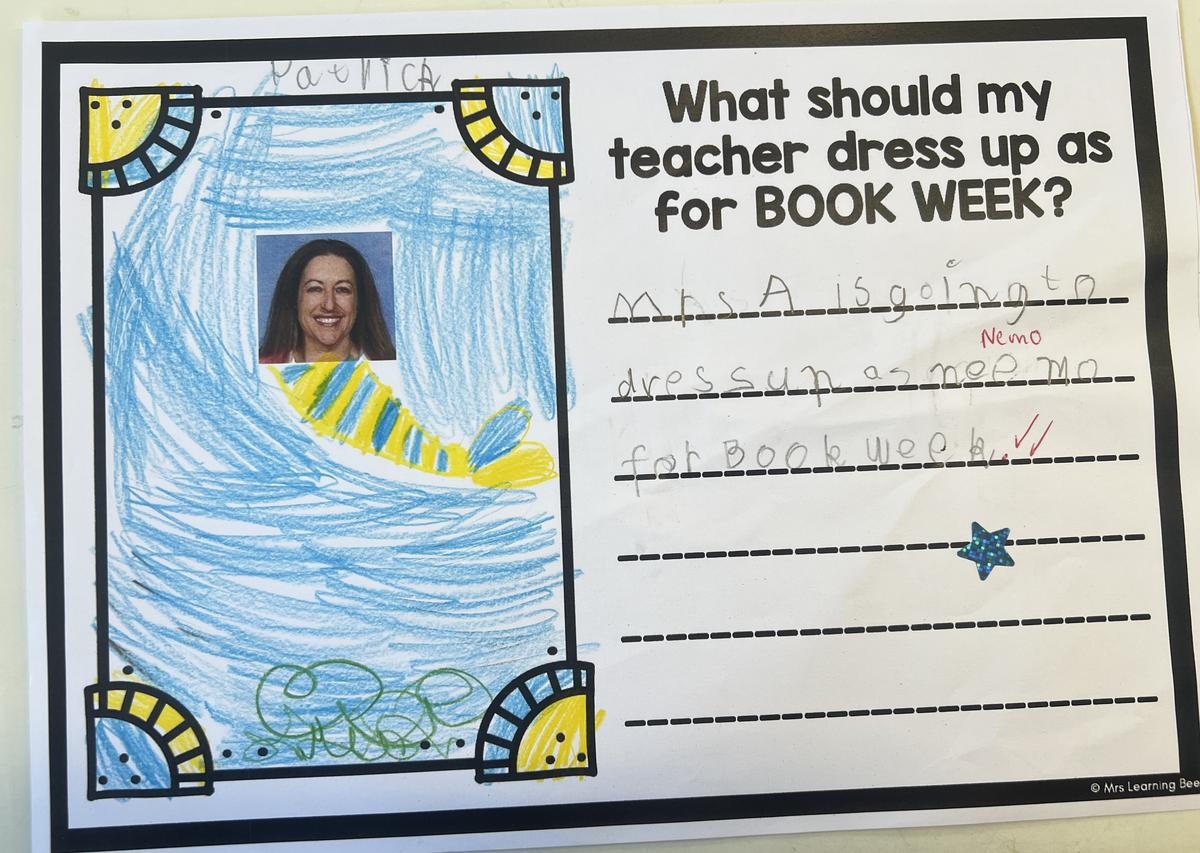 Patrick
What should my
teacher dress up as
for BOOK WEEK?
Mrs A is going to
Nemo
dress up as nee mo
for Book week.
© Mrs Learning Bee